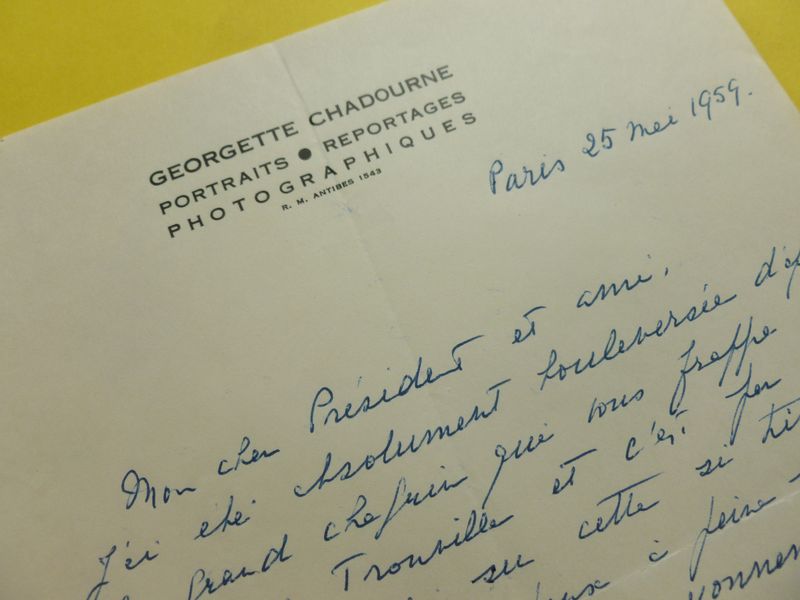 GEORGETTE CHADOURNE
PORTRAITS ● REPORTAGES
PHOTOGRAPHIQUES
R. M. ANTIBES 1543
Paris 25 mai 1959.
Mon cher Président et ami,
J'ai été absolument bouleversée d'ap
grand chagrin que vous frappe
Trouville et c'est par
su cette si tri
à peine